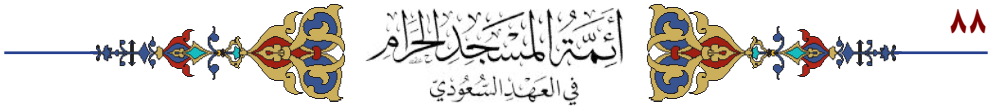 ٨٨
أَئِمَّةُ المَسْجِدِ الحَرَامِ
في العَهْدِ السُّعُودِيّ